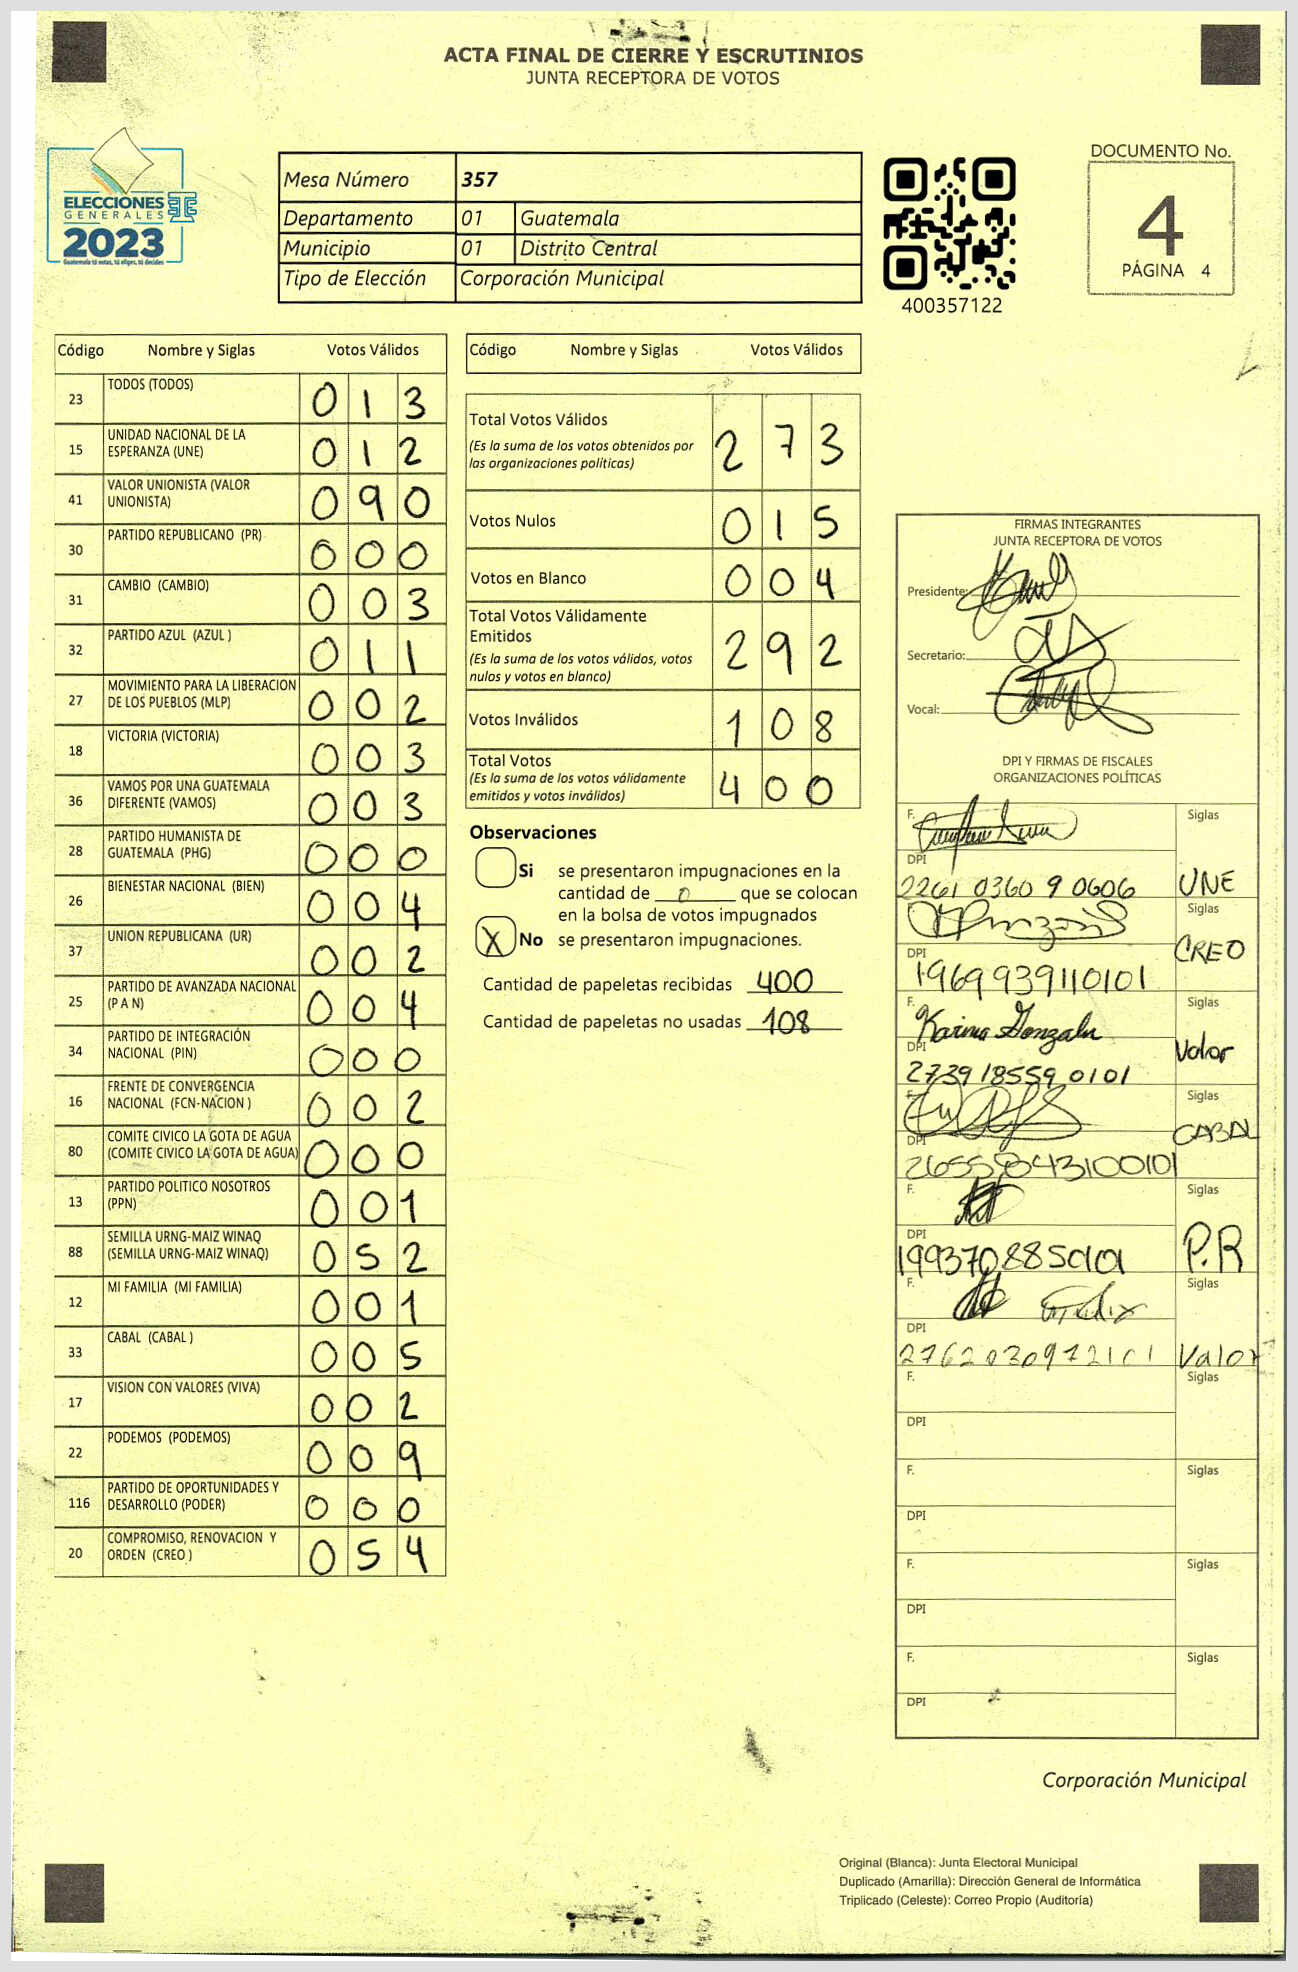 ACTA FINAL DE CIERRE Y ESCRUTINIOS
JUNTA RECEPTORA DE VOTOS
ELECCIONES
GENERALES
2023
Guatemala tú votas, tú eliges, tú decides
Mesa Número 357
Departamento 01 Guatemala
Municipio 01 Distrito Central
Tipo de Elección Corporación Municipal
400357122
DOCUMENTO No.
4
PÁGINA 4
Código Nombre y Siglas Votos Válidos
23 TODOS (TODOS) 0 1 3
15 UNIDAD NACIONAL DE LA
ESPERANZA (UNE) 0 1 2
41 VALOR UNIONISTA (VALOR
UNIONISTA) 0 9 0
30 PARTIDO REPUBLICANO (PR) 0 0 0
31 CAMBIO (CAMBIO) 0 0 3
32 PARTIDO AZUL (AZUL ) 0 1 1
27 MOVIMIENTO PARA LA LIBERACION
DE LOS PUEBLOS (MLP) 0 0 2
18 VICTORIA (VICTORIA) 0 0 3
36 VAMOS POR UNA GUATEMALA
DIFERENTE (VAMOS) 0 0 3
28 PARTIDO HUMANISTA DE
GUATEMALA (PHG) 0 0 0
26 BIENESTAR NACIONAL (BIEN) 0 0 4
37 UNION REPUBLICANA (UR) 0 0 2
25 PARTIDO DE AVANZADA NACIONAL
(P A N) 0 0 4
34 PARTIDO DE INTEGRACIÓN
NACIONAL (PIN) 0 0 0
16 FRENTE DE CONVERGENCIA
NACIONAL (FCN-NACION ) 0 0 2
80 COMITE CIVICO LA GOTA DE AGUA
(COMITE CIVICO LA GOTA DE AGUA) 0 0 0
13 PARTIDO POLITICO NOSOTROS
(PPN) 0 0 1
88 SEMILLA URNG-MAIZ WINAQ
(SEMILLA URNG-MAIZ WINAQ) 0 5 2
12 MI FAMILIA (MI FAMILIA) 0 0 1
33 CABAL (CABAL ) 0 0 5
17 VISION CON VALORES (VIVA) 0 0 2
22 PODEMOS (PODEMOS) 0 0 9
116 PARTIDO DE OPORTUNIDADES Y
DESARROLLO (PODER) 0 0 0
20 COMPROMISO, RENOVACION Y
ORDEN (CREO ) 0 5 4
Código Nombre y Siglas Votos Válidos
Total Votos Válidos
(Es la suma de los votos obtenidos por
las organizaciones políticas) 2 7 3
Votos Nulos 0 1 5
Votos en Blanco 0 0 4
Total Votos Válidamente
Emitidos
(Es la suma de los votos válidos, votos
nulos y votos en blanco) 2 9 2
Votos Inválidos 1 0 8
Total Votos
(Es la suma de los votos válidamente
emitidos y votos inválidos) 4 0 0
Observaciones
Si se presentaron impugnaciones en la
cantidad de 0 que se colocan
en la bolsa de votos impugnados
X No se presentaron impugnaciones.
Cantidad de papeletas recibidas 400
Cantidad de papeletas no usadas 108
FIRMAS INTEGRANTES
JUNTA RECEPTORA DE VOTOS
Presidente:
Secretario:
Vocal:
DPI Y FIRMAS DE FISCALES
ORGANIZACIONES POLÍTICAS
F. Siglas
DPI
2261 0360 9 0606 UNE
Siglas
DPI
1969939110101 CREO
F. Karina Gonzalez Siglas
DPI
2739 18559 0101 Valor
F. Siglas
DPI
CABAL
F. Siglas
DPI
P.R
F. Siglas
DPI
2762030972101 Valor
F. Siglas
DPI
F. Siglas
DPI
F. Siglas
DPI
F. Siglas
DPI
Corporación Municipal
Original (Blanca): Junta Electoral Municipal
Duplicado (Amarilla): Dirección General de Informática
Triplicado (Celeste): Correo Propio (Auditoría)